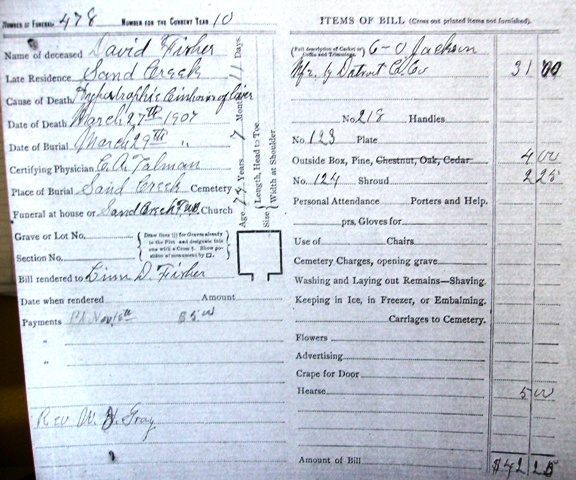 NUMBER OF FUNERAL 478 NUMBER FOR THE CURRENT YEAR 10
Name of deceased David Fisher
Late Residence Sand Creek
Cause of Death Hypertrophic Cirrhosis of Liver
Date of Death March 27th 1907
Date of Burial March 29th "
Certifying Physician C. A. Talman
Place of Burial Sand Creek Cemetery
Funeral at house or Sand Creek Church
Age 74 Years 7 Months 11 Days.
Size { Length, Head to Toe
Width at Shoulder
Grave or Lot No.
Section No.
Bill rendered to Linn D. Fisher
Date when rendered Amount
Payments Pd Nov 18th $5 00
"
"
Rev W. H. Gray
ITEMS OF BILL (Cross out printed items not furnished).
(Full description of Casket or Coffin and Trimmings. 6-0 Jackson
Mfr. by Detroit C. Co 31 00
No. 218 Handles
No. 123 Plate
Outside Box, Pine, Chestnut, Oak, Cedar 4 00
No. 124 Shroud 2 25
Personal Attendance Porters and Help.
prs. Gloves for
Use of Chairs
Cemetery Charges, opening grave
Washing and Laying out Remains—Shaving.
Keeping in Ice, in Freezer, or Embalming.
Carriages to Cemetery.
Flowers
Advertising
Crape for Door
Hearse 5 00
Amount of Bill $42 25